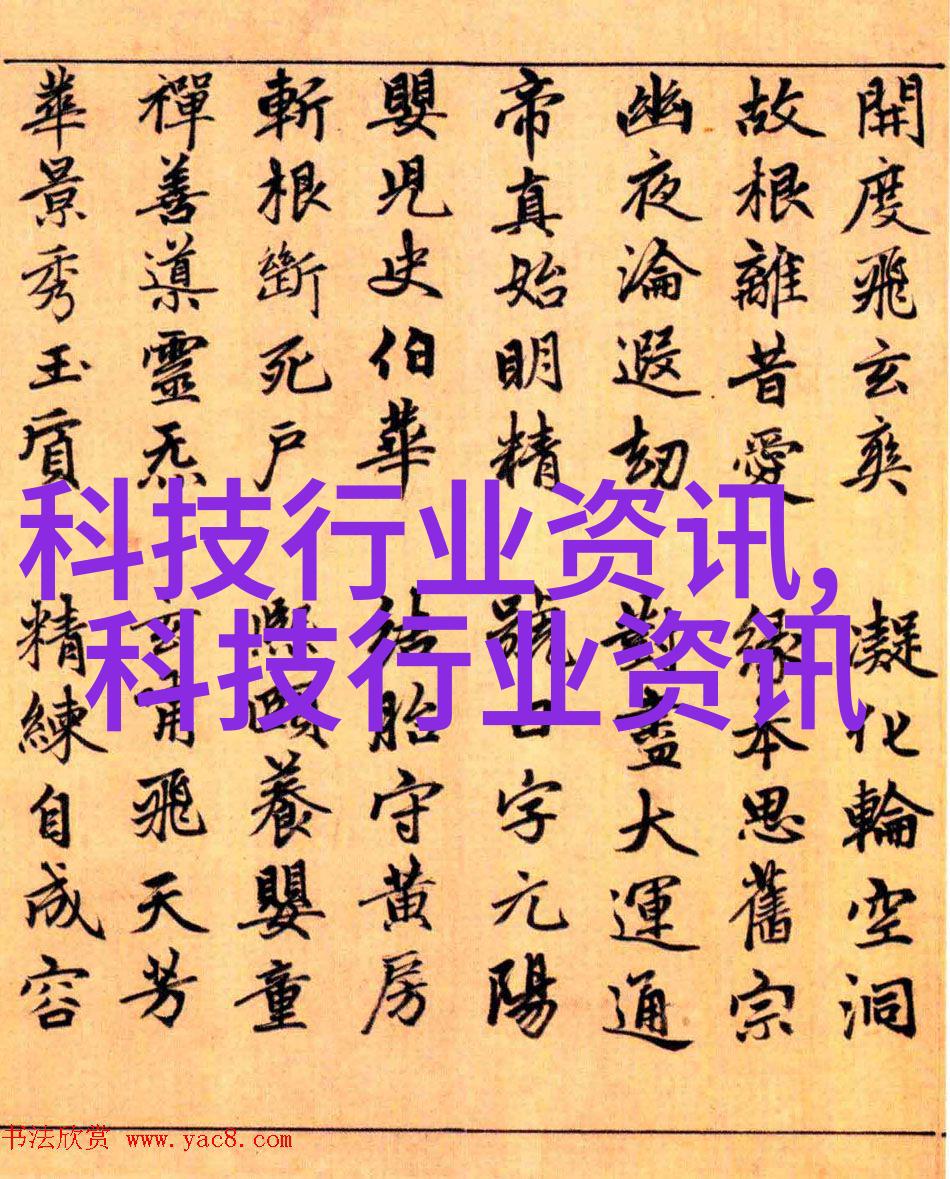 開度飛玄爽 凝化輪空洞
故根離昔愛 緣本思舊宗
幽夜淪遐劫 對盡大運通
帝真始明精 號曰字元陽
嬰兒史伯華 結胎守黃房
斬根斷死戶 熙頤養嬰童
禪善導靈炁 玄飛天芳
華景秀玉質 精練自成容
科技行业资讯,
科技行业资讯
书法欣赏 www.yac8.com